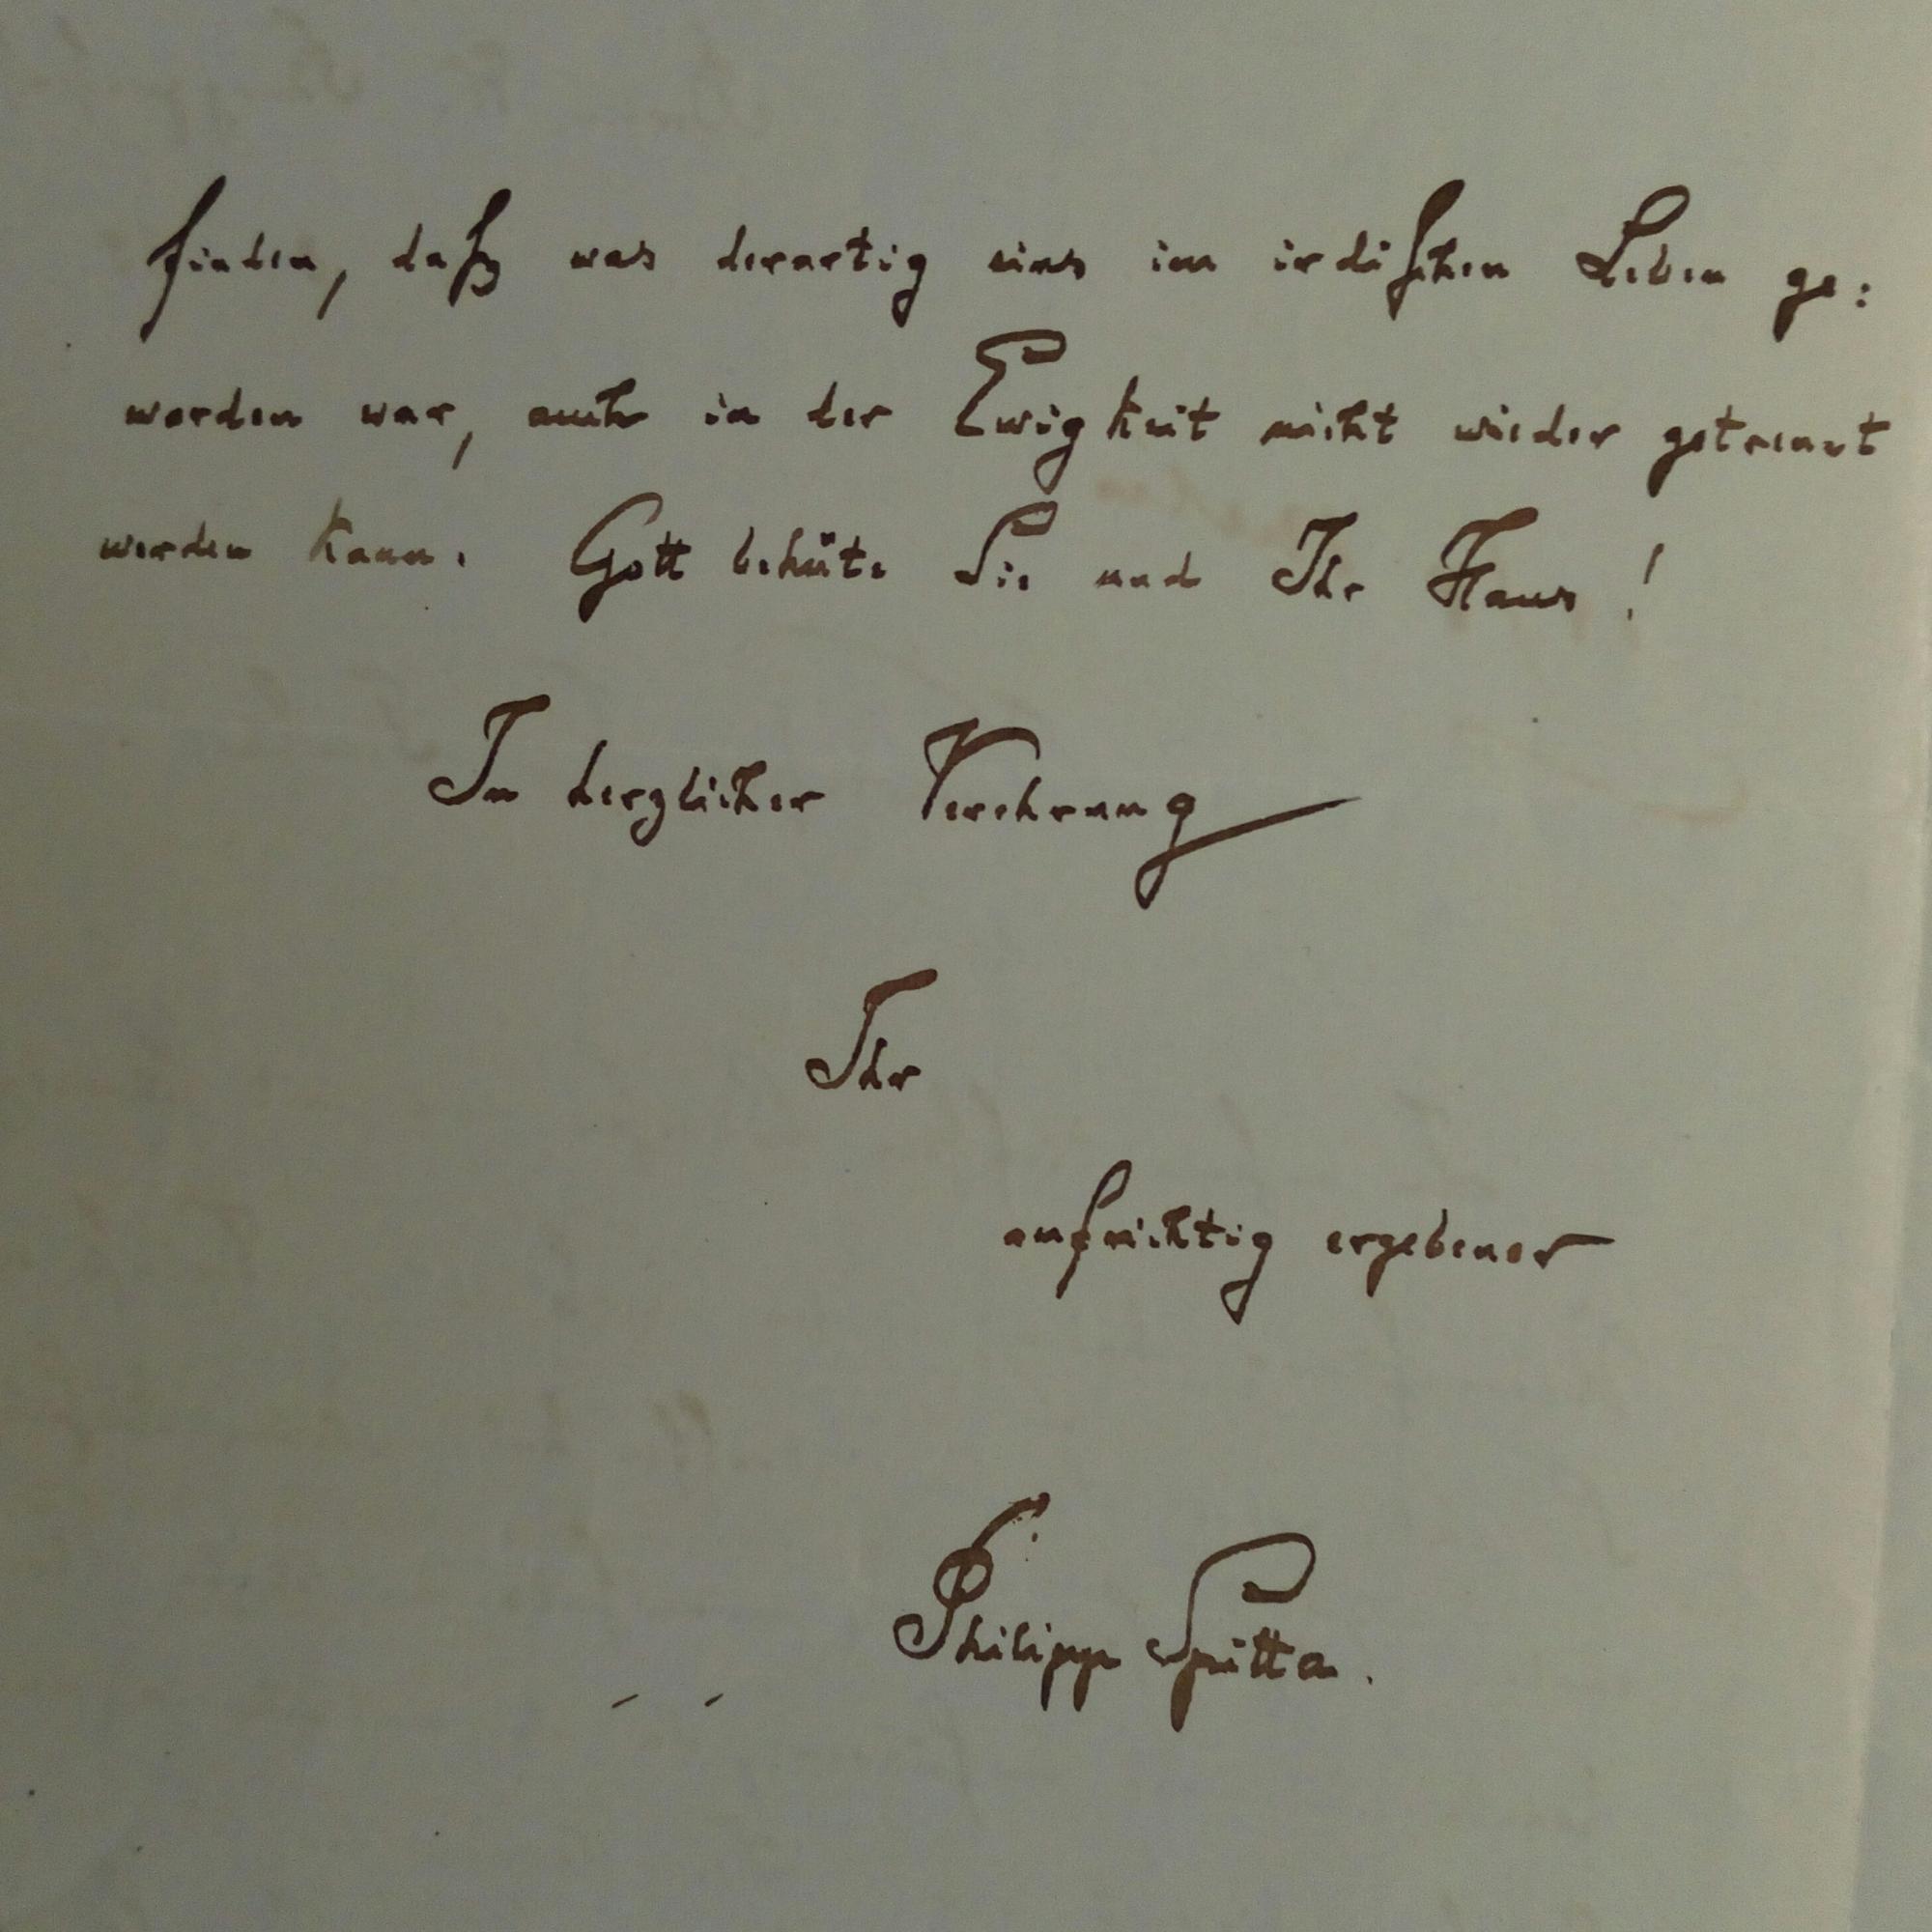 finden, daß was derartig eins im irdischen Leben ge:
worden war, auch in der Ewigkeit nicht wieder getrennt
werden kann. Gott behüte Sie und Ihr Haus!
In herzlicher Verehrung
Ihr
aufrichtig ergebener
Philipp Spitta.